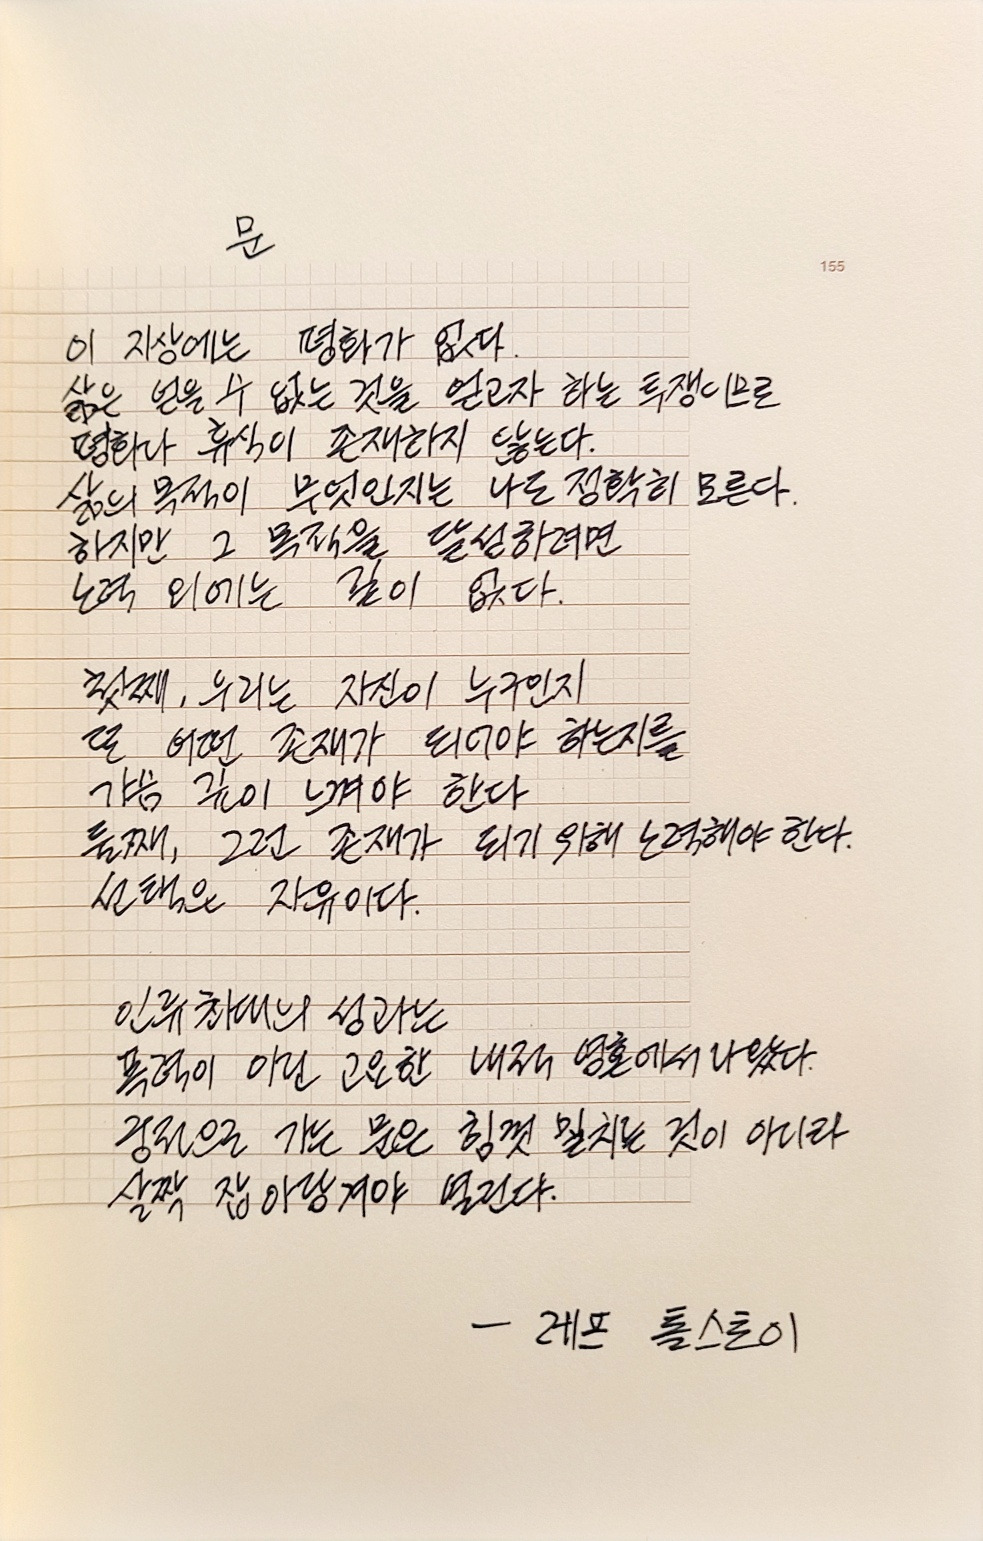 문
155
이 지상에는 평화가 없다.
삶은 얻을 수 없는 것을 얻고자 하는 투쟁이므로
평화나 휴식이 존재하지 않는다.
삶의 목적이 무엇인지는 나도 정확히 모른다.
하지만 그 목적을 달성하려면
노력 외에는 길이 없다.
첫째, 우리는 자신이 누구인지
또 어떤 존재가 되어야 하는지를
가슴 깊이 느껴야 한다
둘째, 그런 존재가 되기 위해 노력해야 한다.
선택은 자유이다.
인류 최대의 성과는
폭력이 아닌 고요한 내적 영혼에서 나왔다.
궁전으로 가는 문은 힘껏 밀치는 것이 아니라
살짝 잡아당겨야 열린다.
- 레프 톨스토이